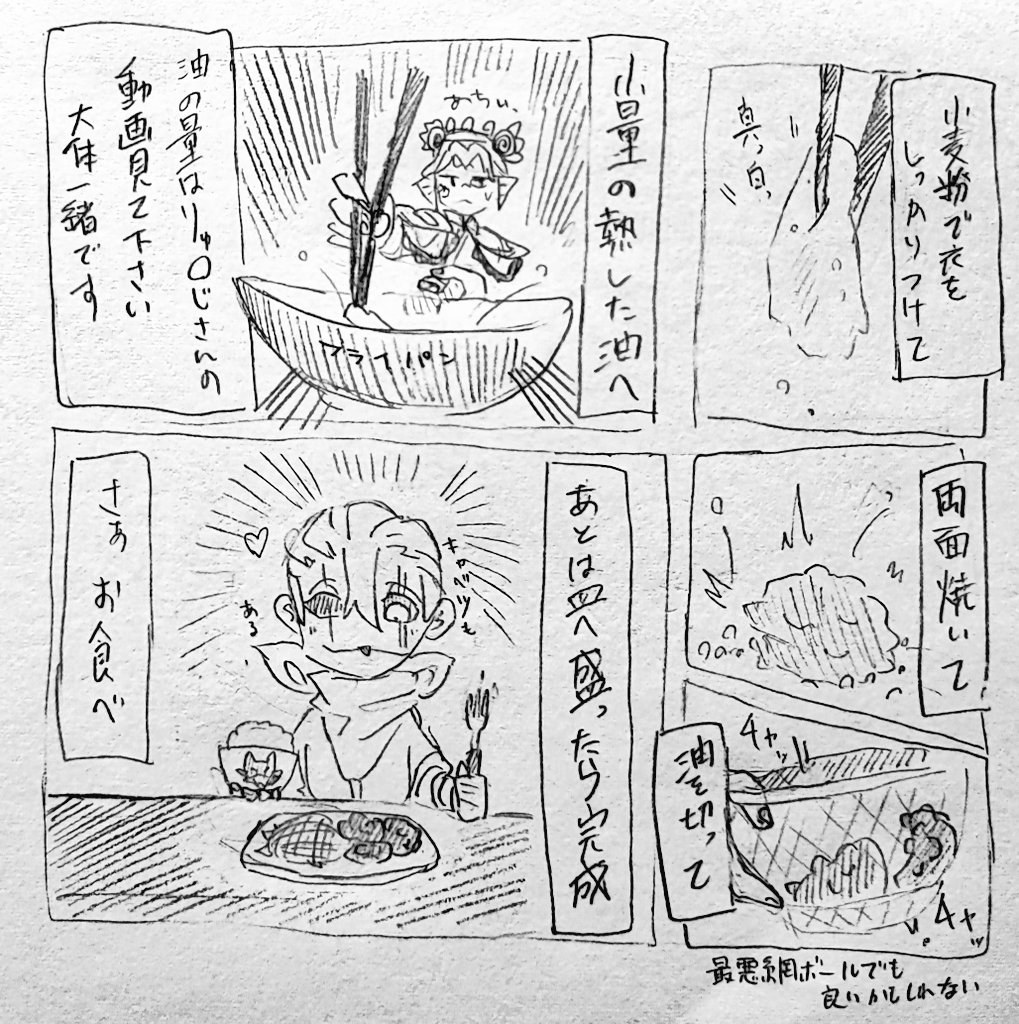 小麦粉で衣を
しっかりつけて
真っ白っ
少量の熱した油へ
あちぃ、
フライパン
油の量はリュ〇じさんの
動画見て下さい
大体一緒です
両面焼いて
油を切って
チャッ!!
チャッ
最悪網ボールでも
良いかもしれない
あとは皿へ盛ったら完成
キャベツも
ある
さぁ お食べ